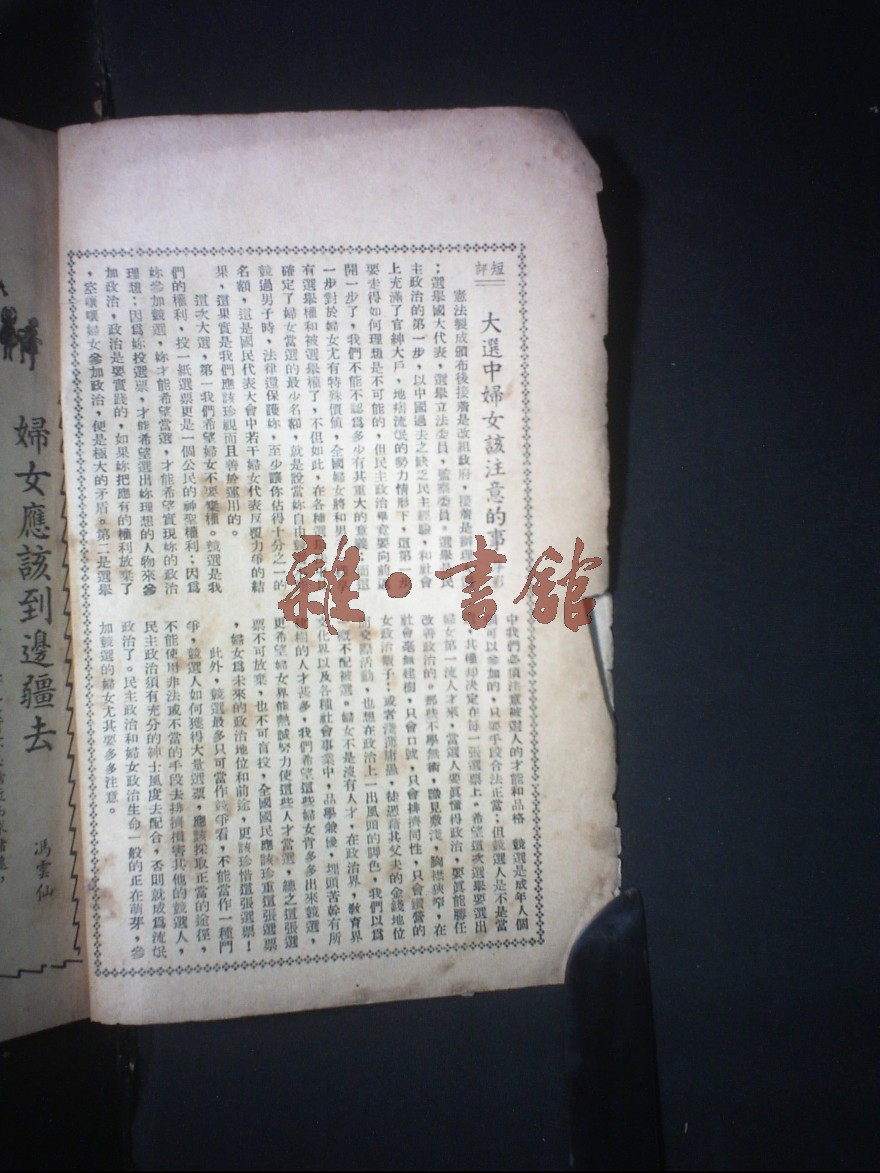 短評
大選中婦女該注意的事
憲法製成頒布後接着是改組政府，接着是辦理
；選舉國大代表，選舉立法委員，監察委員。選舉
主政治的第一步，以中國過去之缺乏民主經驗，和社會
上充滿了官紳大戶，地痞流氓的勢力情形下，這第一步
要走得如何理想是不可能的，但民主政治畢竟要向前邁
開一步了，我們不能不認為多少有其重大的意義；而這
一步對於婦女尤有特殊價值，全國婦女將和男
有選舉權和被選舉權了，不但如此，在各種選
確定了婦女當選的最少名額，就是說當妳自由競
競過男子時，法律還保護妳，至少讓你佔得十分之一的
名額，這是國民代表大會中若干婦女代表反覆力爭的結
果，這果實是我們應該珍視而且善於運用的。
這次大選，第一我們希望婦女不要棄權。競選是我
們的權利，投一紙選票更是一個公民的神聖權利；因為
妳參加競選，妳才能希望當選，才能希望實現妳的政治
理想；因為妳投選票，才能希望選出妳理想的人物來參
加政治，政治是要實踐的，如果妳把應有的權利放棄了
，空嚷嚷婦女參加政治，便是極大的矛盾。第二是選舉
中我們必須注意被選人的才能和品格　競選是成年人個
可以參加的，只要手段合法正當；但競選人是不是當
，其權却決定在每一張選票上。希望這次選舉要選出
婦女第一流人才來，當選人要真懂得政治，要真能勝任
改善政治的。那些不學無術，識見敷淺，胸襟狹窄，在
社會毫無建樹，只會口號，只會排擠同性，只會鑽營的
女政治販子；或者淺薄庸愚，徒憑藉其父夫的金錢地位
而交際活動，也想在政治上一出風頭的脚色，我們以為
概不配被選。婦女不是沒有人才，在政治界，教育界
文化界以及各種社會事業中，品學兼優，埋頭苦幹有所
建樹的人才甚多，我們希望這些婦女肯多多出來競選，
更希望婦女界能熱誠努力使這些人才當選，總之這張選
票不可放棄，也不可盲投，全國國民應該珍重這張選票
，婦女為未來的政治地位和前途，更該珍惜這張選票！
此外，競選最多只可當作競爭看，不能當作一種鬥
爭，競選人如何獲得大量選票，應該採取正當的途徑，
不能使用非法或不當的手段去排擠損害其他的競選人，
民主政治須有充分的紳士風度去配合，否則就成為流氓
政治了。民主政治和婦女政治生命一般的正在萌芽，參
加競選的婦女尤其要多多注意。
婦女應該到邊疆去
馮雲仙
雜·書館